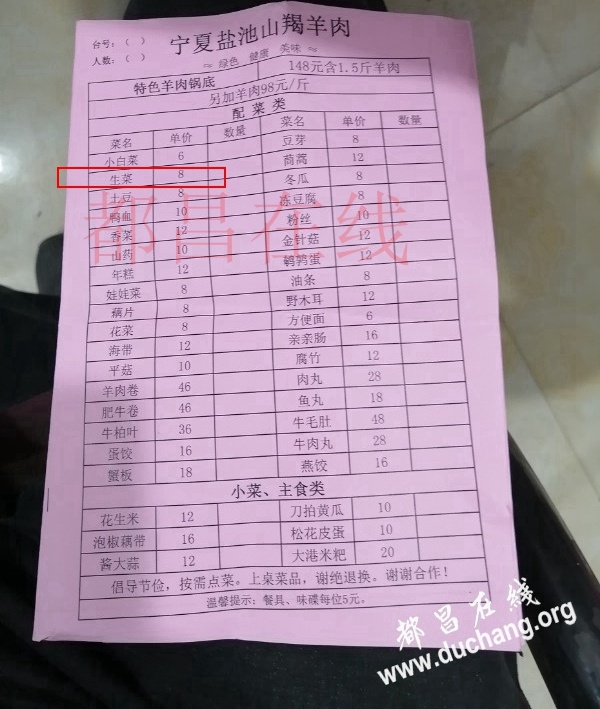 台号：（ ） 宁夏盐池山羯羊肉
人数：（ ） ≈ 绿色 健康 美味 ≈
特色羊肉锅底 148元含1.5斤羊肉
另加羊肉98元/斤
配菜类
菜名 单价 数量 菜名 单价 数量
小白菜 6 豆芽 8
生菜 8 茼蒿 12
土豆 8 冬瓜 8
鸭血 10 冻豆腐 8
香菜 12 粉丝 10
山药 10 金针菇 12
年糕 12 鹌鹑蛋 12
娃娃菜 8 油条 8
藕片 8 野木耳 12
花菜 8 方便面 6
海带 12 亲亲肠 16
平菇 10 腐竹 12
羊肉卷 46 肉丸 28
肥牛卷 46 鱼丸 18
牛柏叶 36 牛毛肚 48
蛋饺 16 牛肉丸 28
蟹板 18 燕饺 16
小菜、主食类
花生米 12 刀拍黄瓜 10
泡椒藕带 16 松花皮蛋 10
酱大蒜 12 大港米粑 20
倡导节俭，按需点菜。上桌菜品，谢绝退换。谢谢合作！
温馨提示：餐具、味碟每位5元。
都昌在线
都昌在线
www.duchang.org